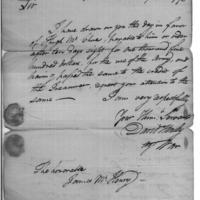 Sir
I have drawn on you this day in favor
of payable to him or order
after ten days sight for two thousand five
hundred dollars, for the use of the Army and
have passed the same to the credit of
the Treasurer request your attention to the
same — I am very respectfully
Your Hum. Servant
David Henley
The honorable
James McHenry